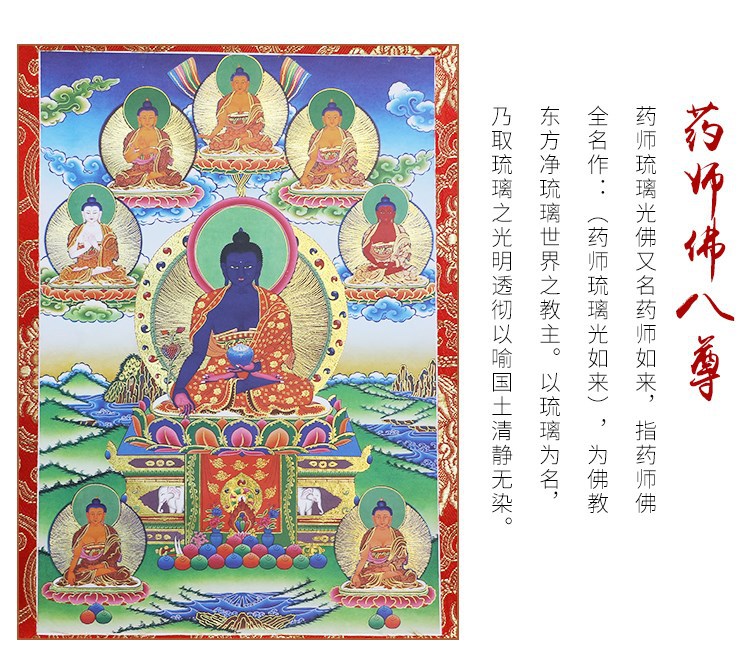 药师佛八尊
药师琉璃光佛又名药师如来，指药师佛
全名作：（药师琉璃光如来），为佛教
东方净琉璃世界之教主。以琉璃为名，
乃取琉璃之光明透彻以喻国土清静无染。